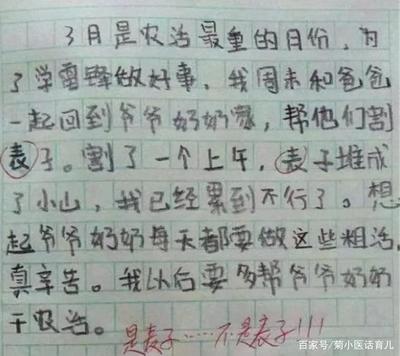 3月是农活最重的月份，为
了学雷锋做好事，我周末和爸爸
一起回到爷爷奶奶家，帮他们割
表子。割了一个上午，表子堆成
了小山，我已经累到不行了。想
起爷爷奶奶每天都要做这些粗活，
真辛苦。我以后要多帮爷爷奶奶
干农活。
是麦子……不是表子!!!
百家号/菊小医话育儿